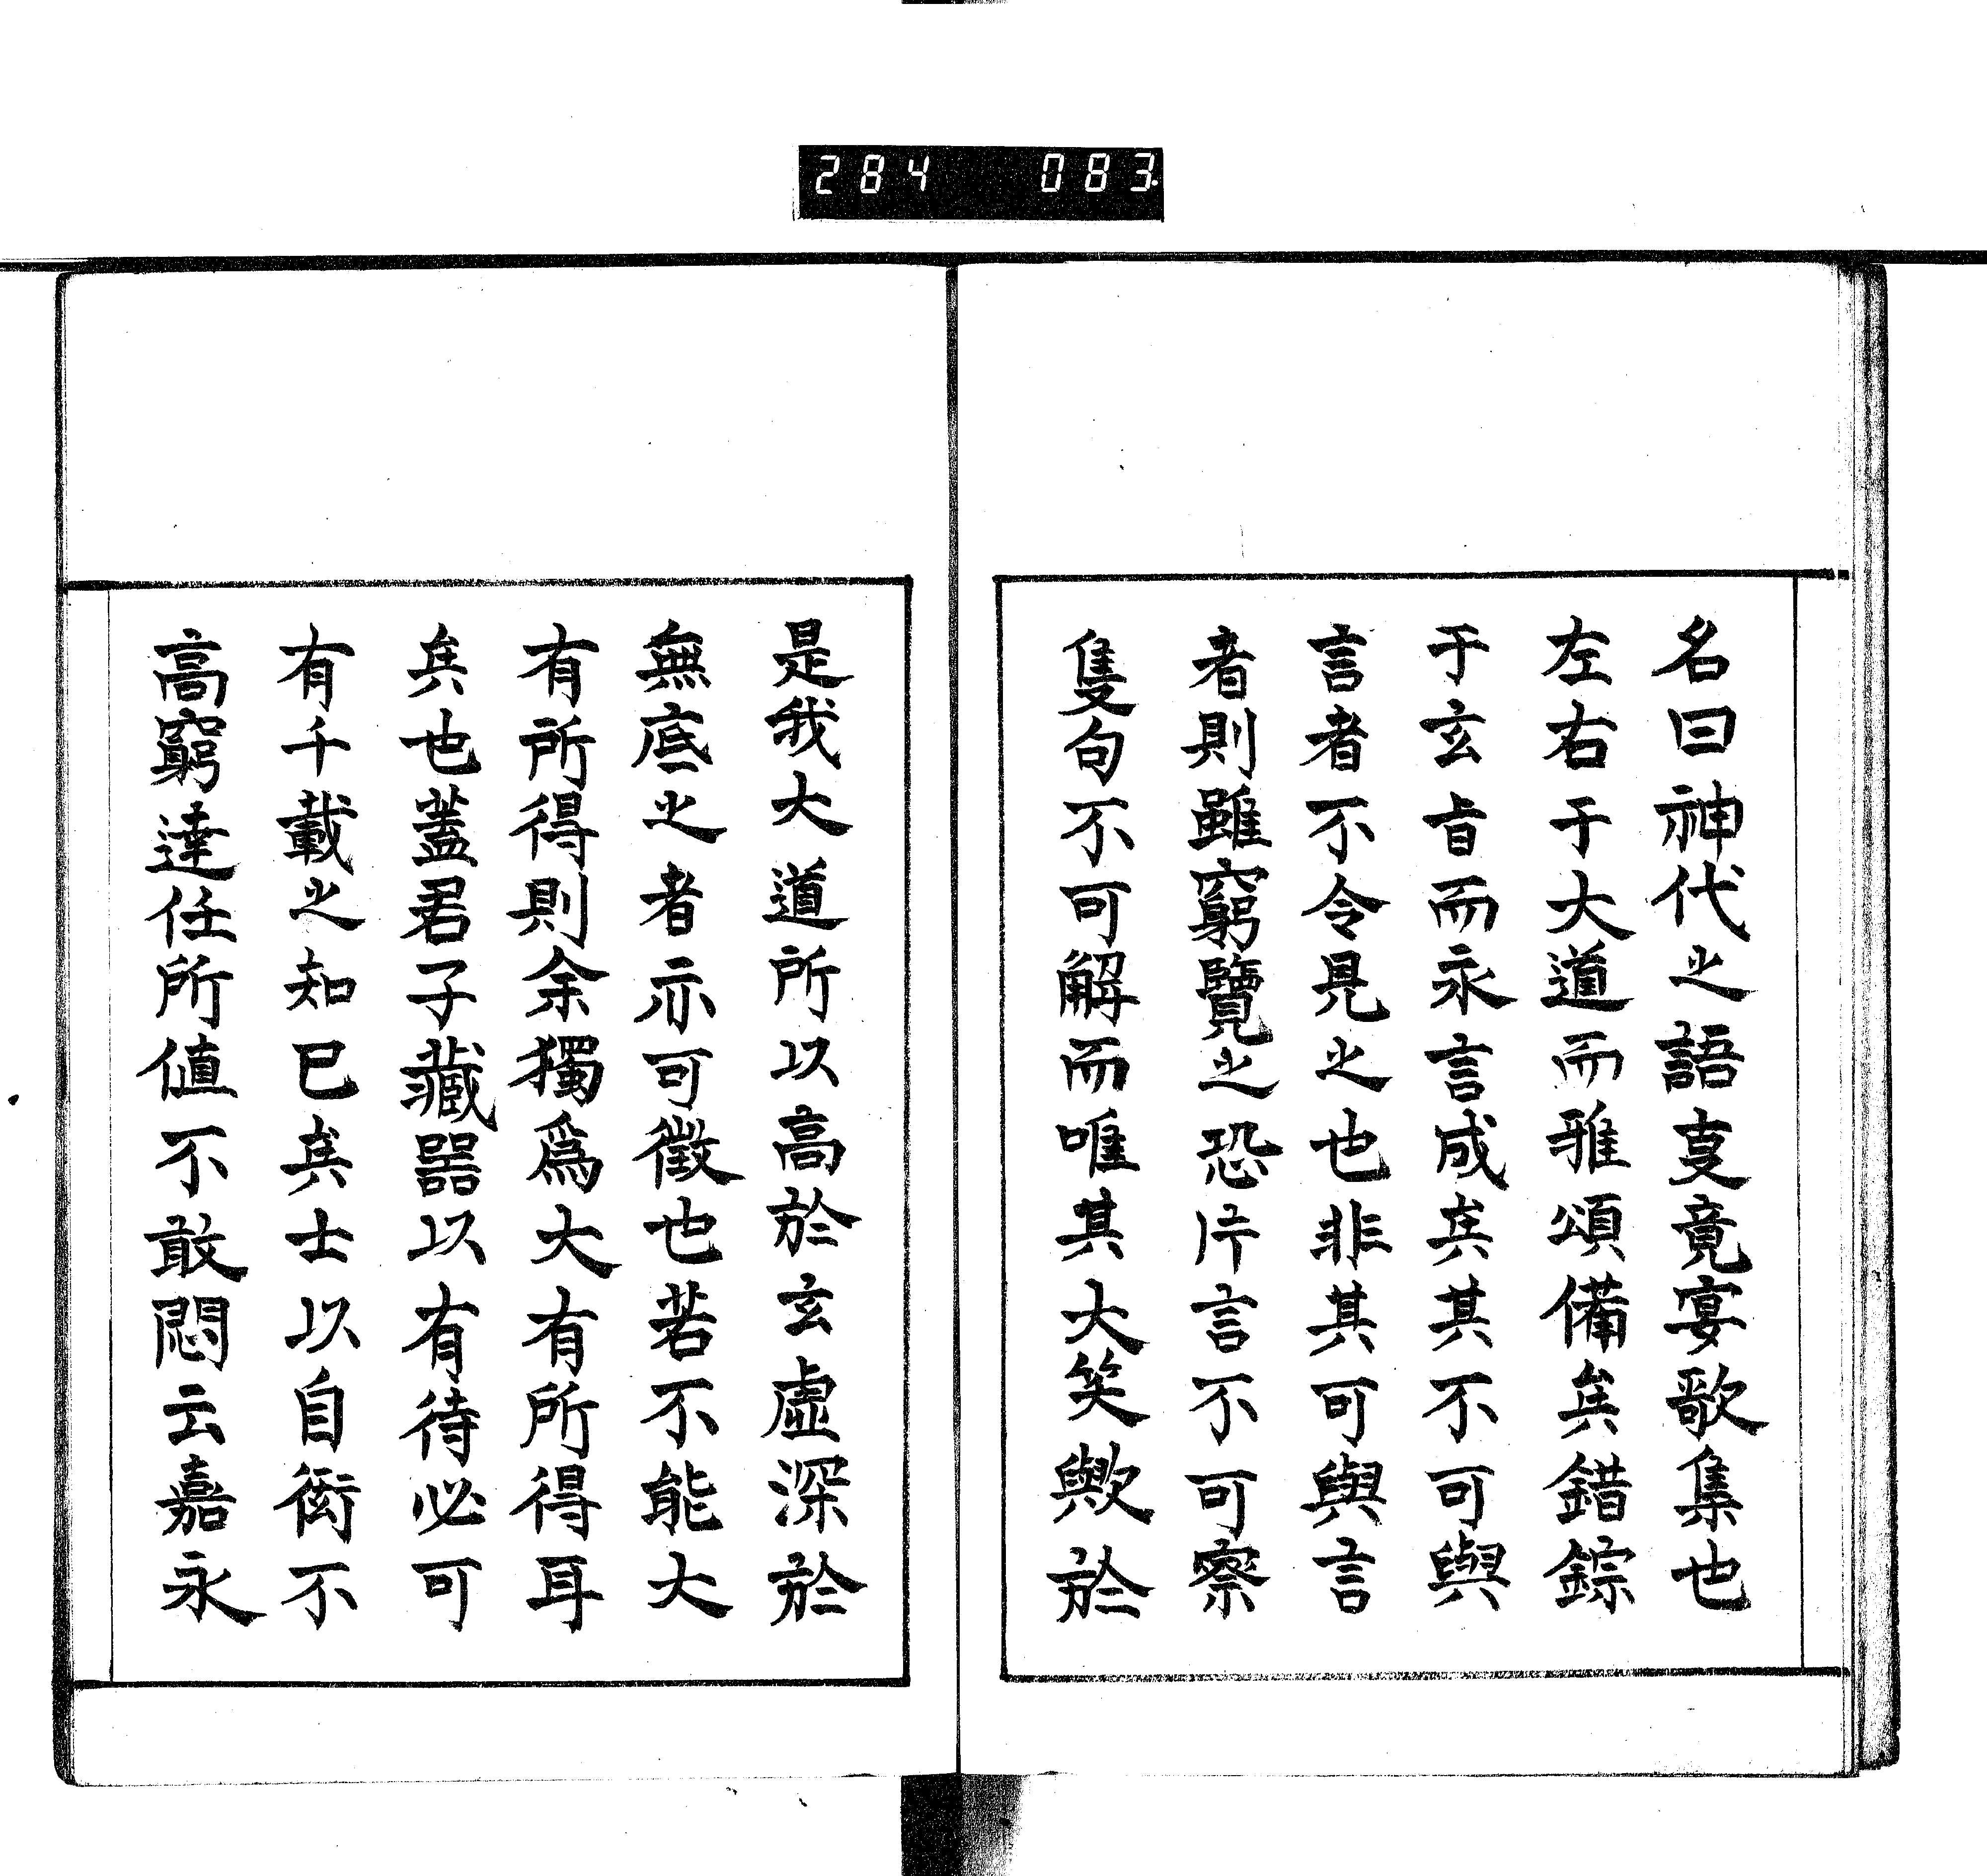 284 083
名曰神代之語叓竟宴歌集也
左右于大道而雅頌備矣錯綜
于玄旨而永言成矣其不可與
言者不令見之也非其可與言
者則雖窮覽之恐片言不可察
隻句不可解而唯其大笑歟於
是我大道所以高於玄虛深於
無底之者亦可徵也若不能大
有所得則余獨爲大有所得耳
矣也蓋君子藏器以有待必可
有千載之知已矣士以自衒不
高窮達任所値不敢悶云嘉永